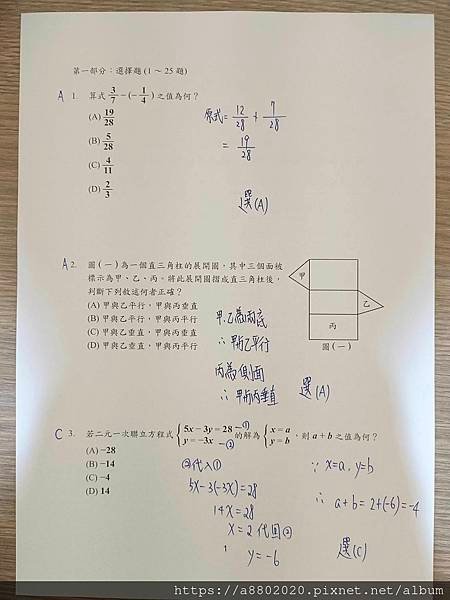 第一部分：選擇題 (1 ～ 25 題)
A 1. 算式 3/7 －(－ 1/4 ) 之值為何？
(A) 19/28
(B) 5/28
(C) 4/11
(D) 2/3
原式 = 12/28 + 7/28
= 19/28
選(A)
A 2. 圖(一)為一個直三角柱的展開圖，其中三個面被
標示為甲、乙、丙。將此展開圖摺成直三角柱後，
判斷下列敘述何者正確？
(A) 甲與乙平行，甲與丙垂直
(B) 甲與乙平行，甲與丙平行
(C) 甲與乙垂直，甲與丙垂直
(D) 甲與乙垂直，甲與丙平行
甲
乙
丙
圖(一)
甲.乙為兩底
∴ 甲與乙平行
丙為側面
∴ 甲與丙垂直
選(A)
C 3. 若二元一次聯立方程式 { 5x－3y＝28 —① y＝－3x —② 的解為 { x＝a y＝b ，則 a＋b 之值為何？
(A) －28
(B) －14
(C) －4
(D) 14
②代入①
5x-3(-3x)=28
14x=28
x=2 代回②
y=-6
∵ x=a, y=b
∴ a+b=2+(-6)=-4
選(C)
1
https://a8802020.pixnet.net/album